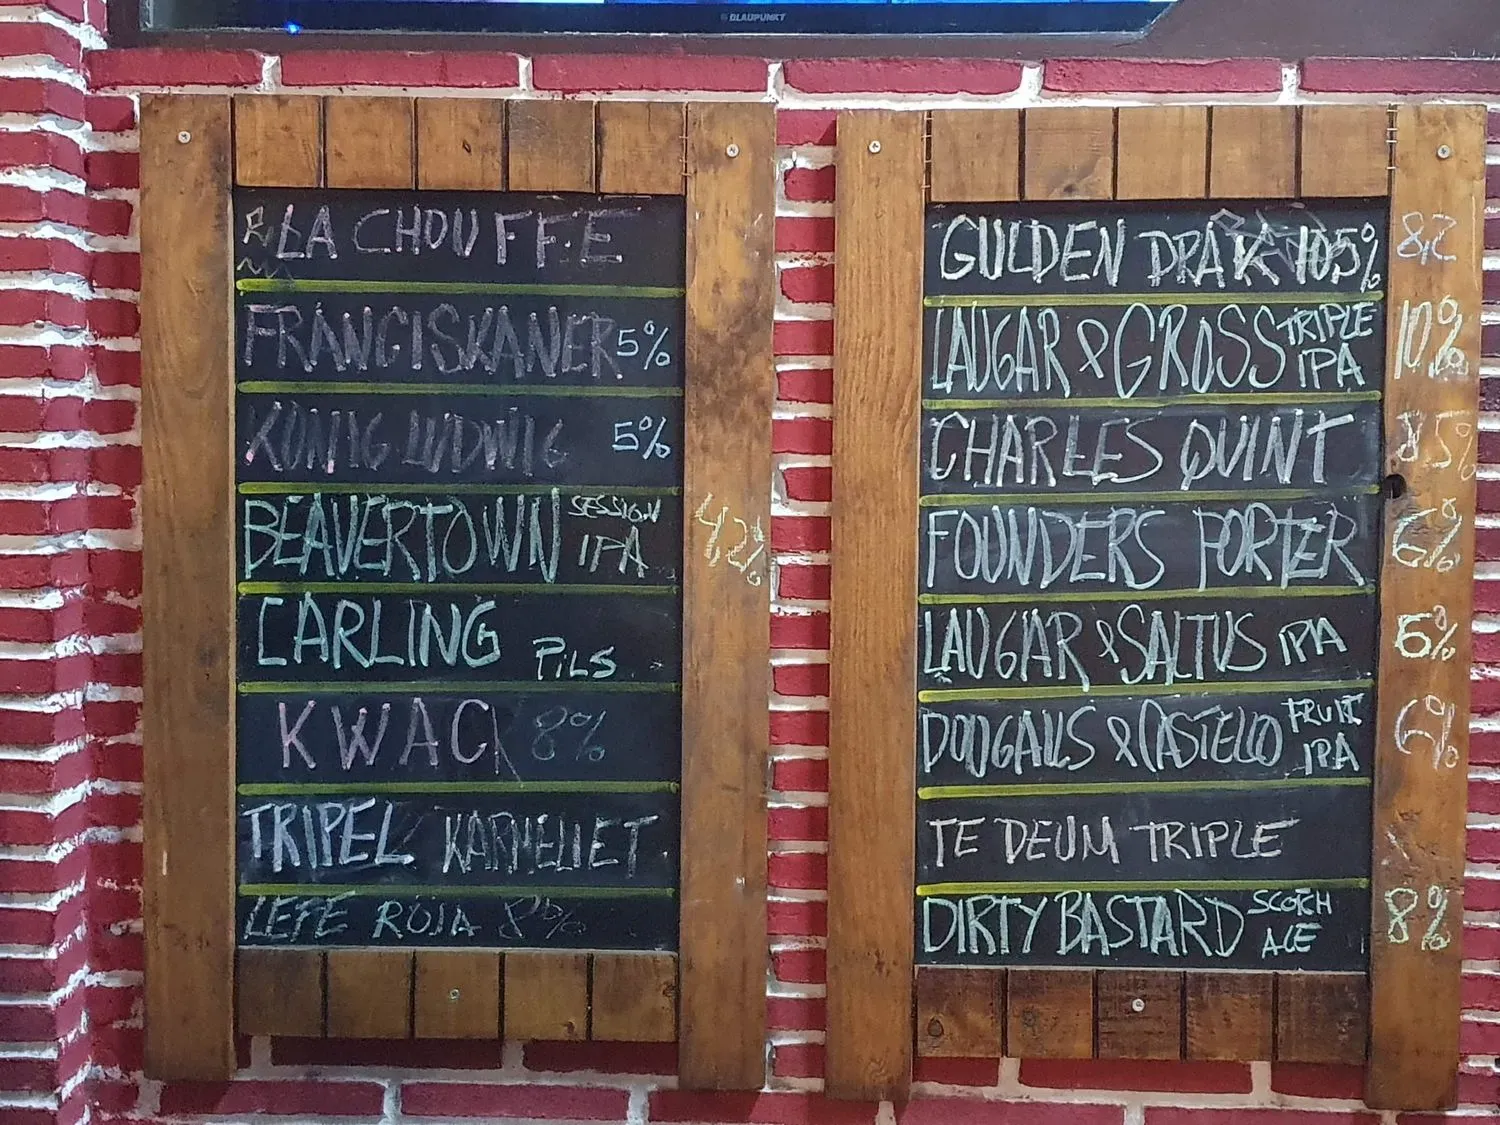 BLAUPUNKT
LA CHOUFFE
FRANCISKANER 5%
KÖNIG LUDWIG 5%
BEAVERTOWN SESSION IPA 4,2%
CARLING PILS
KWAC 8%
TRIPEL KARMELIET
LEFE ROJA 8%
GULDEN DRAK 10,5% 8,2
LAUGAR & GROSS TRIPLE IPA 10%
CHARLES QUINT 8,5%
FOUNDERS PORTER 6%
LAUGAR & SALTUS IPA 6%
DOUGALLS & CASTELLO FRUIT IPA 6%
TE DEUM TRIPLE
DIRTY BASTARD SCOTCH ALE 8%